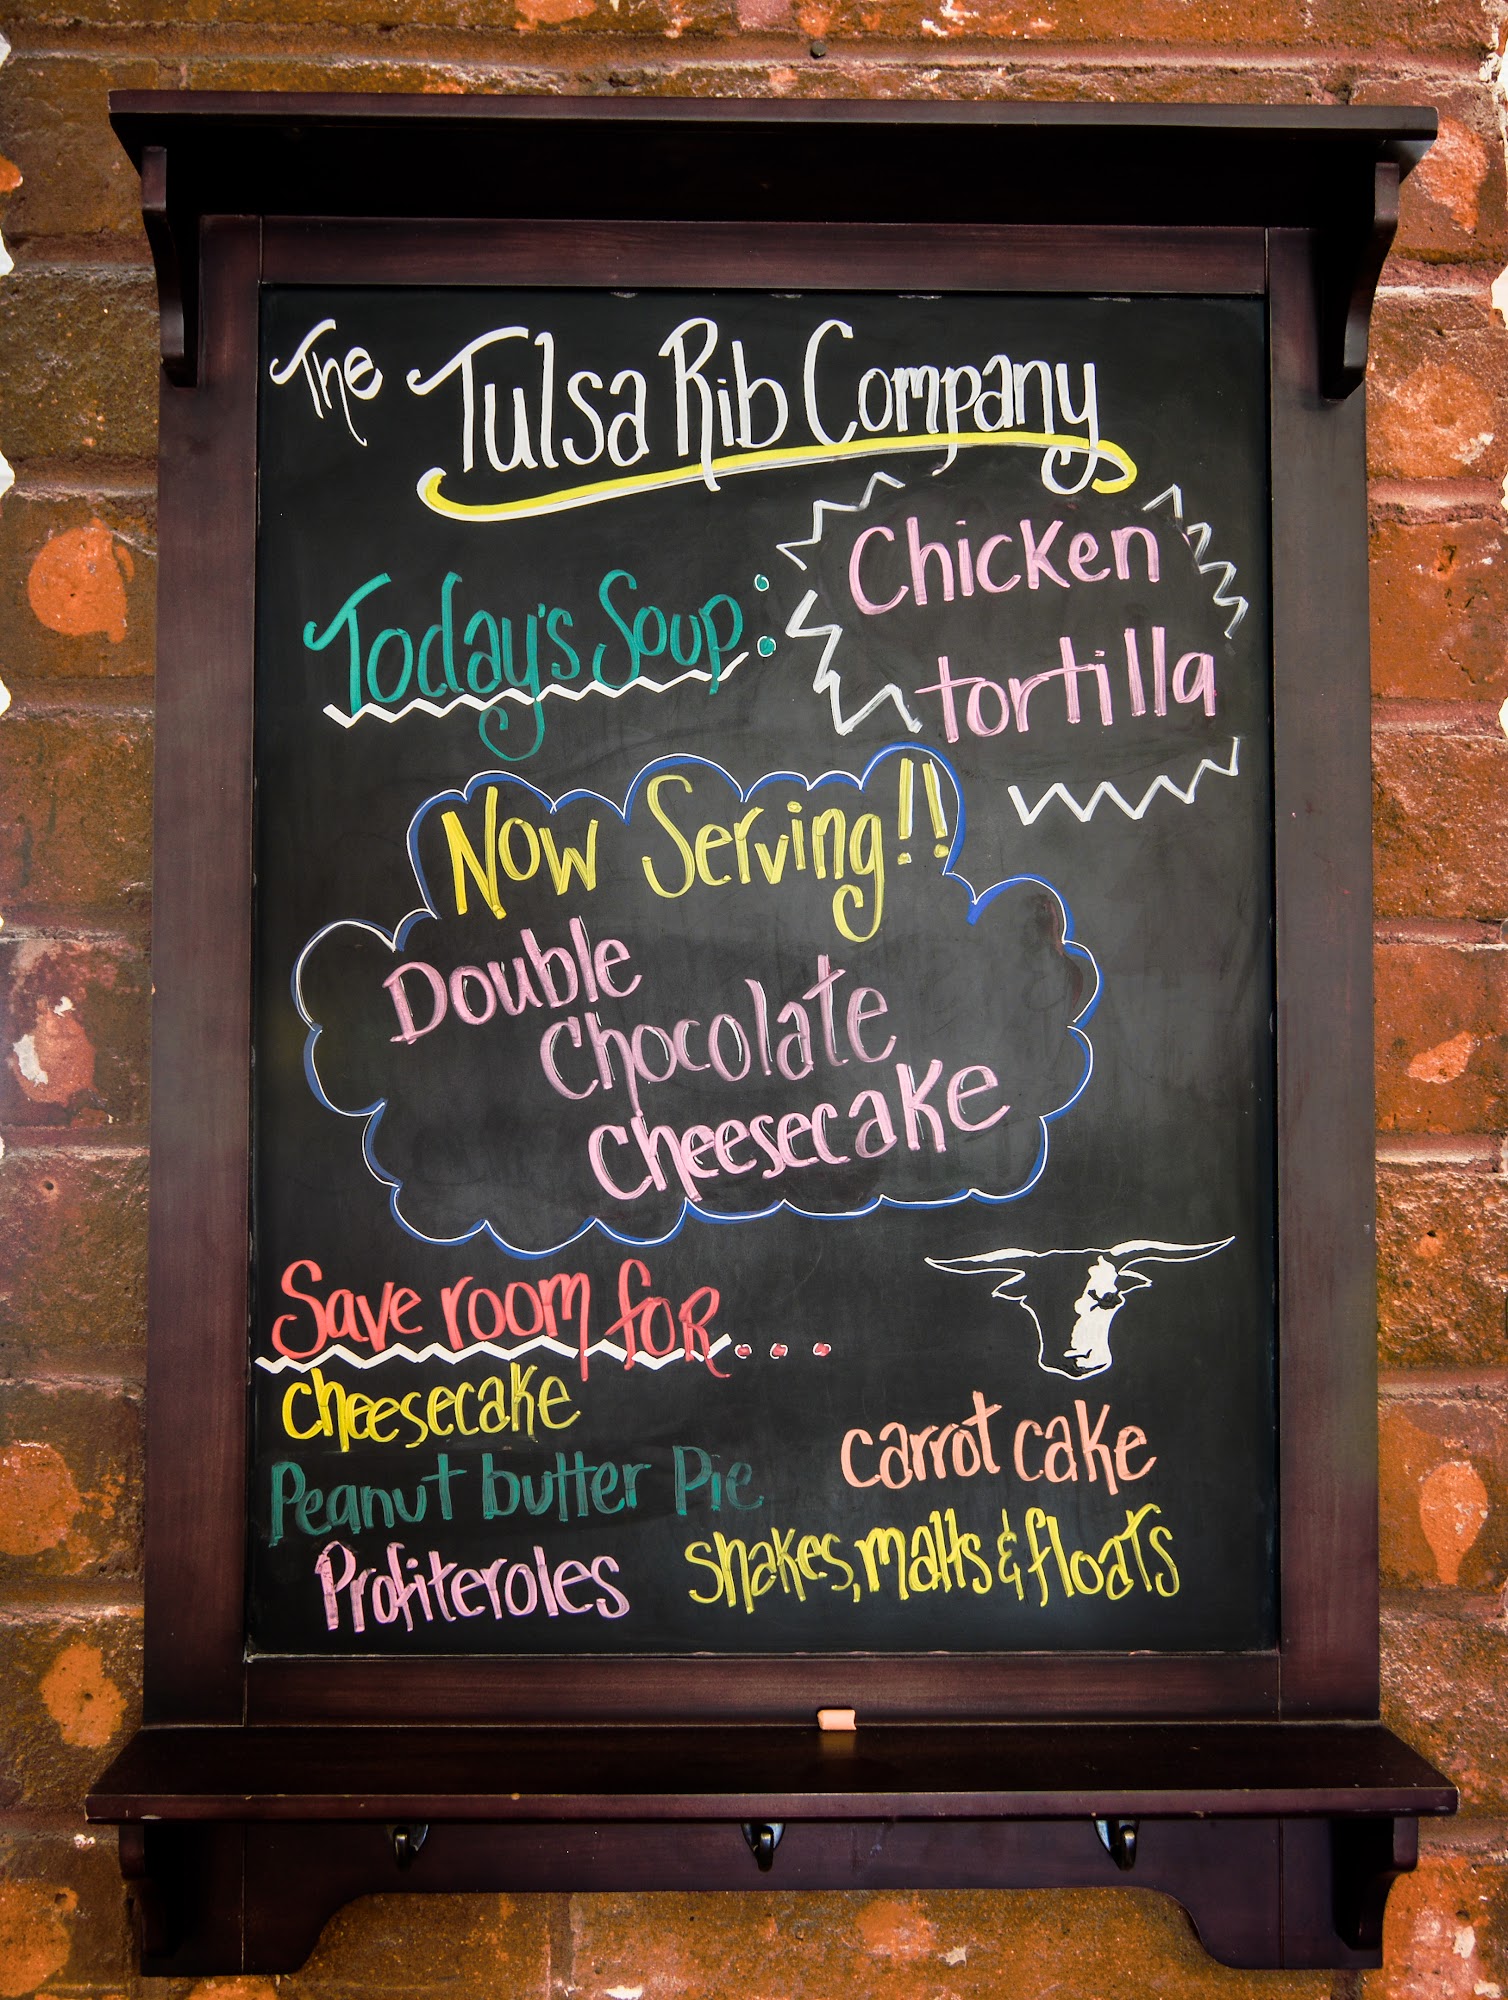 The Tulsa Rib Company
Today's Soup:
Chicken
tortilla
Now Serving!!
Double
Chocolate
Cheesecake
Save room for...
Cheesecake
carrot cake
Peanut butter Pie
shakes, malts & floats
Profiteroles